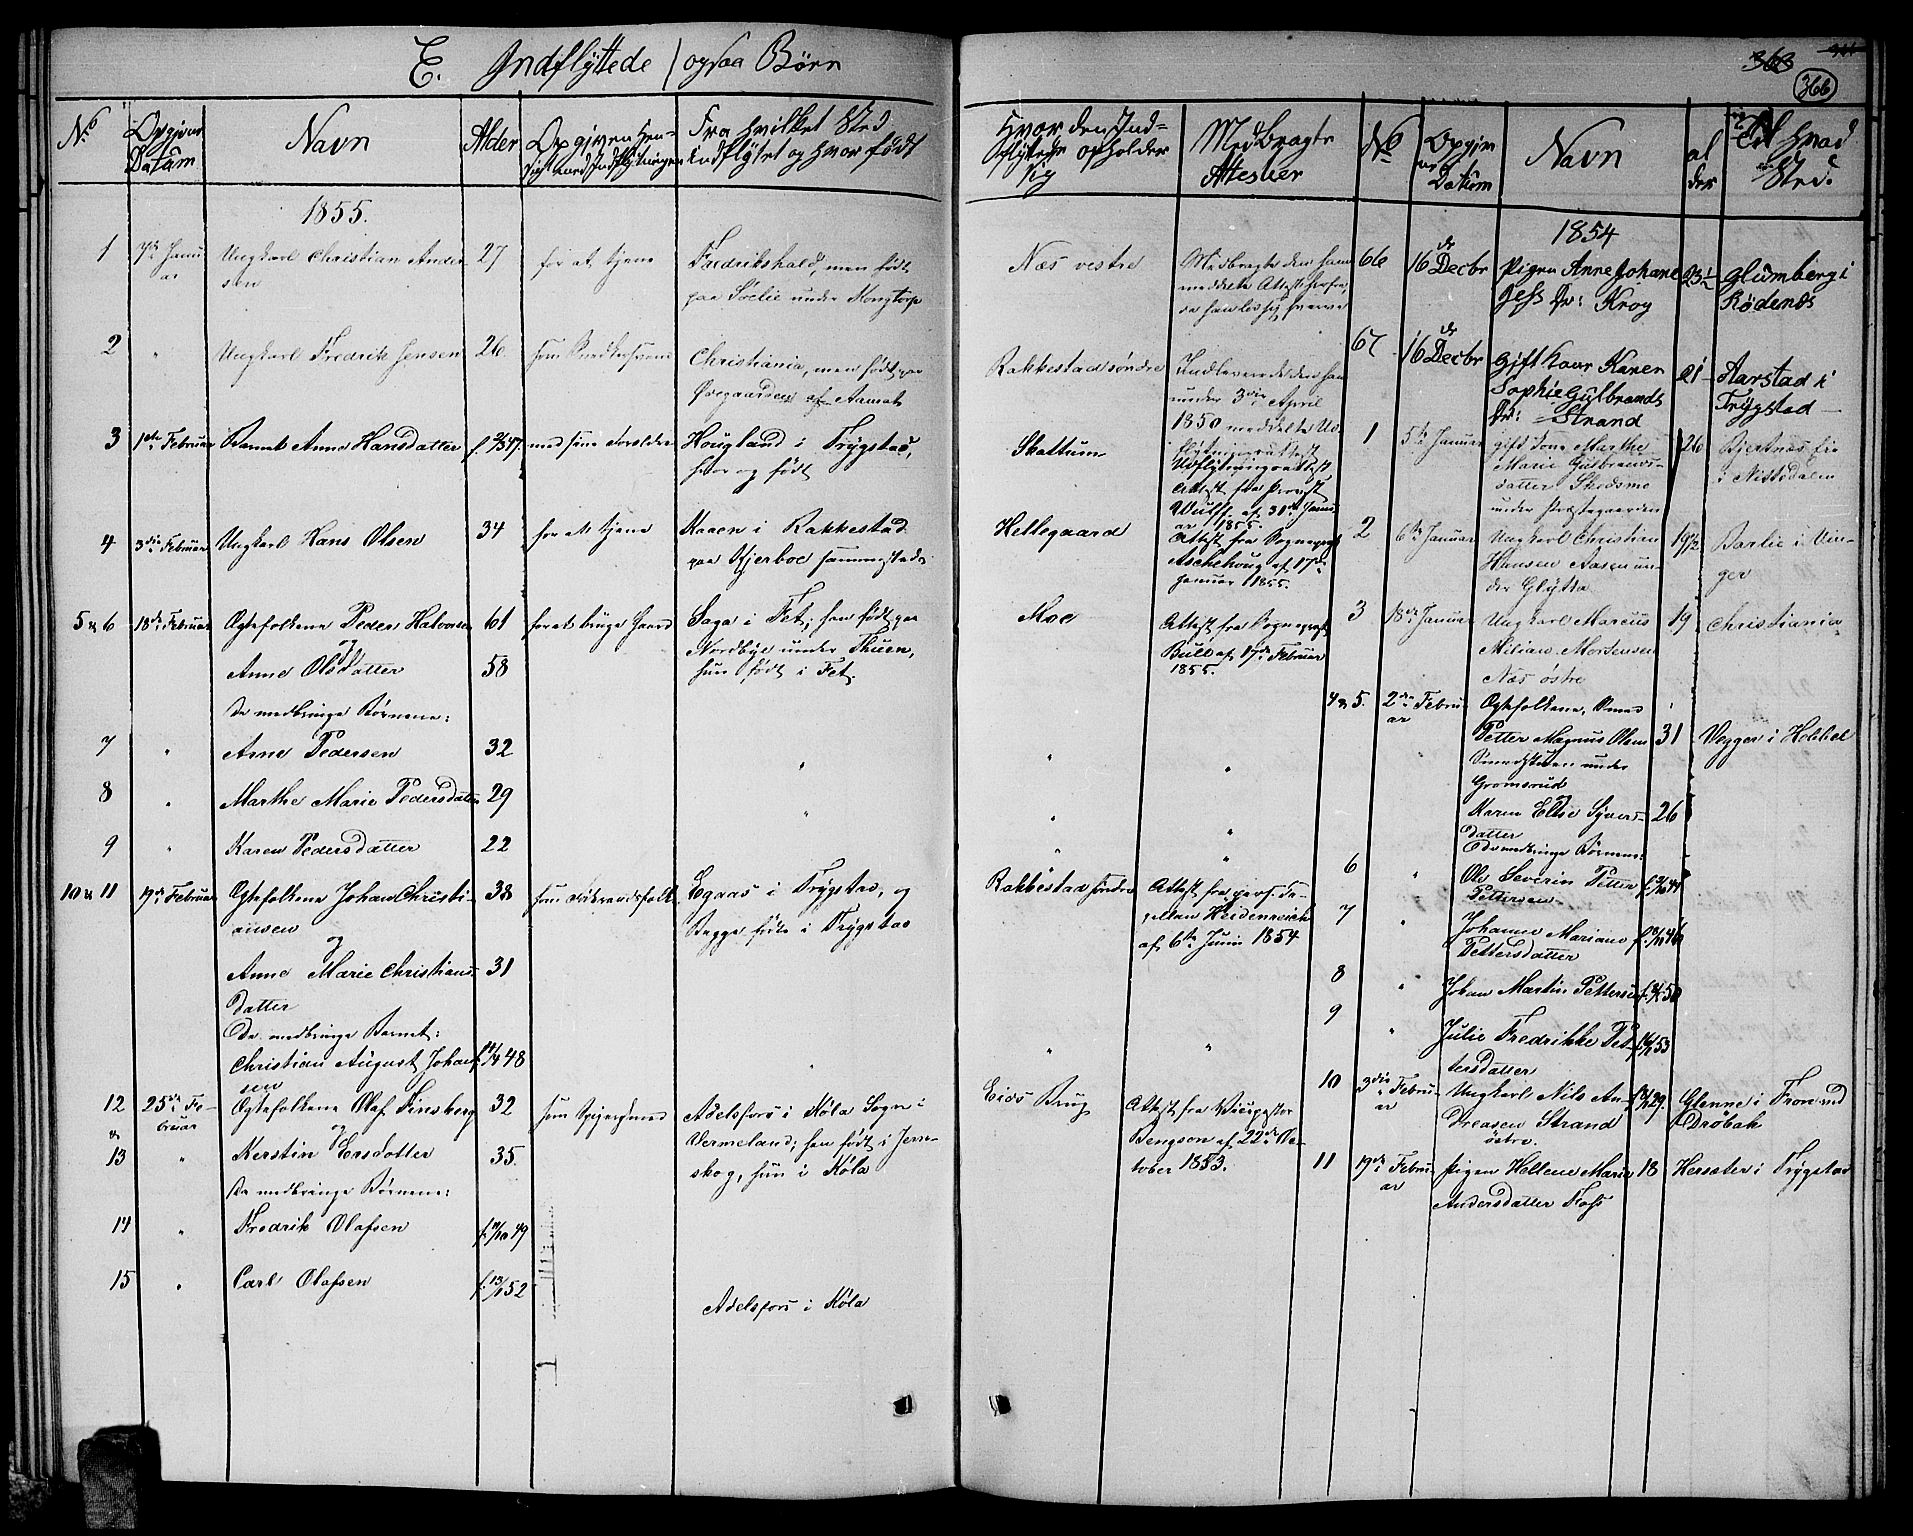 E. Indflyttede / ogsaa Børn
363
366
No
Opgivne Datum
Navn
Alder
Opgiven Hen-
sigt med Indflytningen
Fra hvilket Sted
indflytet og hvor født
Hvor den Ind-
flyttede opholder
sig
Medbragte
Attester
1855.
1
7de Janu
ar
Ungkarl Christian Ander
sen
27
for at tjene
Fredrikshald, men født
paa Sælie under Kongtorp
Næs vestre
Medbragte den ham
meddelte Attest herfra,
da han lod sig herfra
2
"
Ungkarl Fredrik Jensen
26
Christiania, men født paa
Øvegaarden af Aamot
Rakkestad søndre
Indleverede den ham
under 3die April
1850 meddelte Ud-
flytningsattest
3
1ste Februar
Barnet Anne Hansdatter
med sine Forældre
Hougland i Trygstad,
hvor og født
Skattum
Udflytningsattest
Attest fra Provst
Wulff af 31te Janu
ar 1855.
4
3die Februar
Ungkarl Hans Olsen
34
for at tjene
Kaaen i Rakkestad
paa Kjerboe sammesteds
Hellegaard
Attest fra Sognepræst
Aschehoug af 17de
Januar 1855.
5 & 6
18de Februar
Egtefolkene Peder Halvorsen
og
61
for at bruge Gaard
Saga i Fet; han født paa
Nordbye under Thuen,
hun født i Fet.
Moe
Attest fra Sognepræst
Bull af 17de Februar
1855.
Anne Olsdatter
58
De medbringe Børnene:
7
"
Arne Pedersen
32
"
8
"
Marthe Marie Pedersdatter
29
"
9
"
Karen Pedersdatter
22
10 & 11
19de Februar
Egtefolkene Johan Christi-
ansen
og
38
som Huusmandsfolk
Egaas i Trygstad, og
Begge fødte i Trygstad
Rakkestad søndre
Attest fra pers. Ca-
pellan Heidenreich
af 6te Juni 1854
Anne Marie Christians-
datter
31
De medbringe Barnet:
Christian August Johan-
sen
12
&
13
25de Fe-
bruar
Egtefolkene Olaf Finsberg
og
32
Adelsfors i Køla Sogn i
Vermeland; han født i Jern-
skog, hun i Køla
Eids Brug
Attest fra Vicepastor
Bengson af 22de Oc-
tober 1853.
Kerstin Larsdatter
35.
De medbringe Børnene:
14
"
Fredrik Olafsen
15
"
Carl Olafsen
f. 13/1 52
Adelsfors i Køla
No
Opgiv
ne
Datum
Navn
al
der
Til hvad
Sted.
1854
66
16 de Decbr
Pigen Anne Johane
Jens Dr: Krog
23½
Glumberg i
Rødenæs
67
16 de Decbr
Gift Kone Karen
Sophie Gulbrands
Dr: Strand
21
Aarstad i
Trygstad
1
5te Januar
gift Kone Marthe
Marie Gulbrands-
datter Skedsmo
under Præstegaarden
26
Bjertnæs
i Nittedalen
2
6te Januar
Ungkarl Christian
Hansen Aasen un-
der Glytta
19½
Barlie i Vin-
ger
3
18de Januar
Ungkarl Marcus
Milian Mortensen
Næs østre
19
Christiania
4 & 5.
2den Febru
ar
Egtefolkene, Smed
Petter Magnus Olsen
under
Gromsrud
31
Vegger i Hobbel
Karen Elise Syvers-
datter
26
De medbringe Børnene:
6
"
Ole Severin Petter
Pettersen
7
"
Johanne Mariane
Pettersdatter
8
"
Johan Martin Pettersen
9
"
Julie Fredrikke Pet-
tersdatter
10
3die Febru
ar
Ungkarl Nils An-
dreasen Strand
østre.
Glenne i Fron ved
Drøbak
11
19de Febru
ar
Pigen Hellene Marie
Andersdatter Foss
18
Hersæter i Trygstad